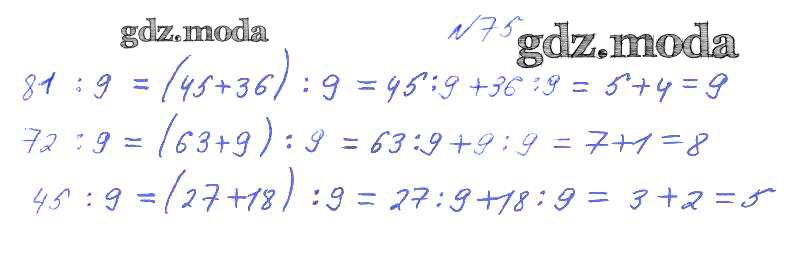 gdz.moda
№75 gdz.moda
81 : 9 = (45+36) : 9 = 45:9 +36 :9 = 5+4=9
72 : 9 = (63+9) : 9 = 63:9+9:9 = 7+1=8
45 : 9 = (27+18) :9 = 27:9+18:9 = 3+2=5